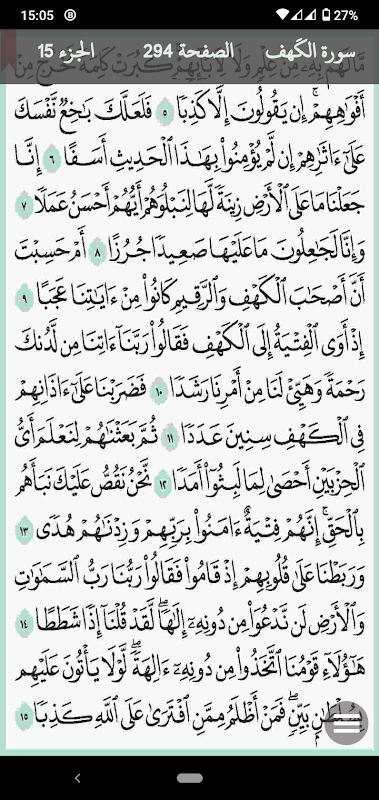 15:05 27%
سورة الكَهف الصفحة 294 الجزء 15
مَّا لَهُم بِهِۦ مِنْ عِلْمٍ وَلَا لِءَابَآئِهِمْ كَبُرَتْ كَلِمَةً تَخْرُجُ مِنْ
أَفْوَٰهِهِمْ ۚ إِن يَقُولُونَ إِلَّا كَذِبًا ٥ فَلَعَلَّكَ بَٰخِعٌ نَّفْسَكَ
عَلَىٰٓ ءَاثَٰرِهِمْ إِن لَّمْ يُؤْمِنُوا۟ بِهَٰذَا ٱلْحَدِيثِ أَسَفًا ٦ إِنَّا
جَعَلْنَا مَا عَلَى ٱلْأَرْضِ زِينَةً لَّهَا لِنَبْلُوَهُمْ أَيُّهُمْ أَحْسَنُ عَمَلًا ٧
وَإِنَّا لَجَٰعِلُونَ مَا عَلَيْهَا صَعِيدًا جُرُزًا ٨ أَمْ حَسِبْتَ
أَنَّ أَصْحَٰبَ ٱلْكَهْفِ وَٱلرَّقِيمِ كَانُوا۟ مِنْ ءَايَٰتِنَا عَجَبًا ٩
إِذْ أَوَى ٱلْفِتْيَةُ إِلَى ٱلْكَهْفِ فَقَالُوا۟ رَبَّنَآ ءَاتِنَا مِن لَّدُنكَ
رَحْمَةً وَهَيِّئْ لَنَا مِنْ أَمْرِنَا رَشَدًا ١٠ فَضَرَبْنَا عَلَىٰٓ ءَاذَانِهِمْ
فِى ٱلْكَهْفِ سِنِينَ عَدَدًا ١١ ثُمَّ بَعَثْنَٰهُمْ لِنَعْلَمَ أَىُّ
ٱلْحِزْبَيْنِ أَحْصَىٰ لِمَا لَبِثُوٓا۟ أَمَدًا ١٢ نَّحْنُ نَقُصُّ عَلَيْكَ نَبَأَهُم
بِٱلْحَقِّ ۚ إِنَّهُمْ فِتْيَةٌ ءَامَنُوا۟ بِرَبِّهِمْ وَزِدْنَٰهُمْ هُدًى ١٣
وَرَبَطْنَا عَلَىٰ قُلُوبِهِمْ إِذْ قَامُوا۟ فَقَالُوا۟ رَبُّنَا رَبُّ ٱلسَّمَٰوَٰتِ
وَٱلْأَرْضِ لَن نَّدْعُوَا۟ مِن دُونِهِۦٓ إِلَٰهًا ۖ لَّقَدْ قُلْنَآ إِذًا شَطَطًا ١٤
هَٰٓؤُلَآءِ قَوْمُنَا ٱتَّخَذُوا۟ مِن دُونِهِۦٓ ءَالِهَةً ۖ لَّوْلَا يَأْتُونَ عَلَيْهِم
بِسُلْطَٰنٍۭ بَيِّنٍ ۖ فَمَنْ أَظْلَمُ مِمَّنِ ٱفْتَرَىٰ عَلَى ٱللَّهِ كَذِبًا ١٥